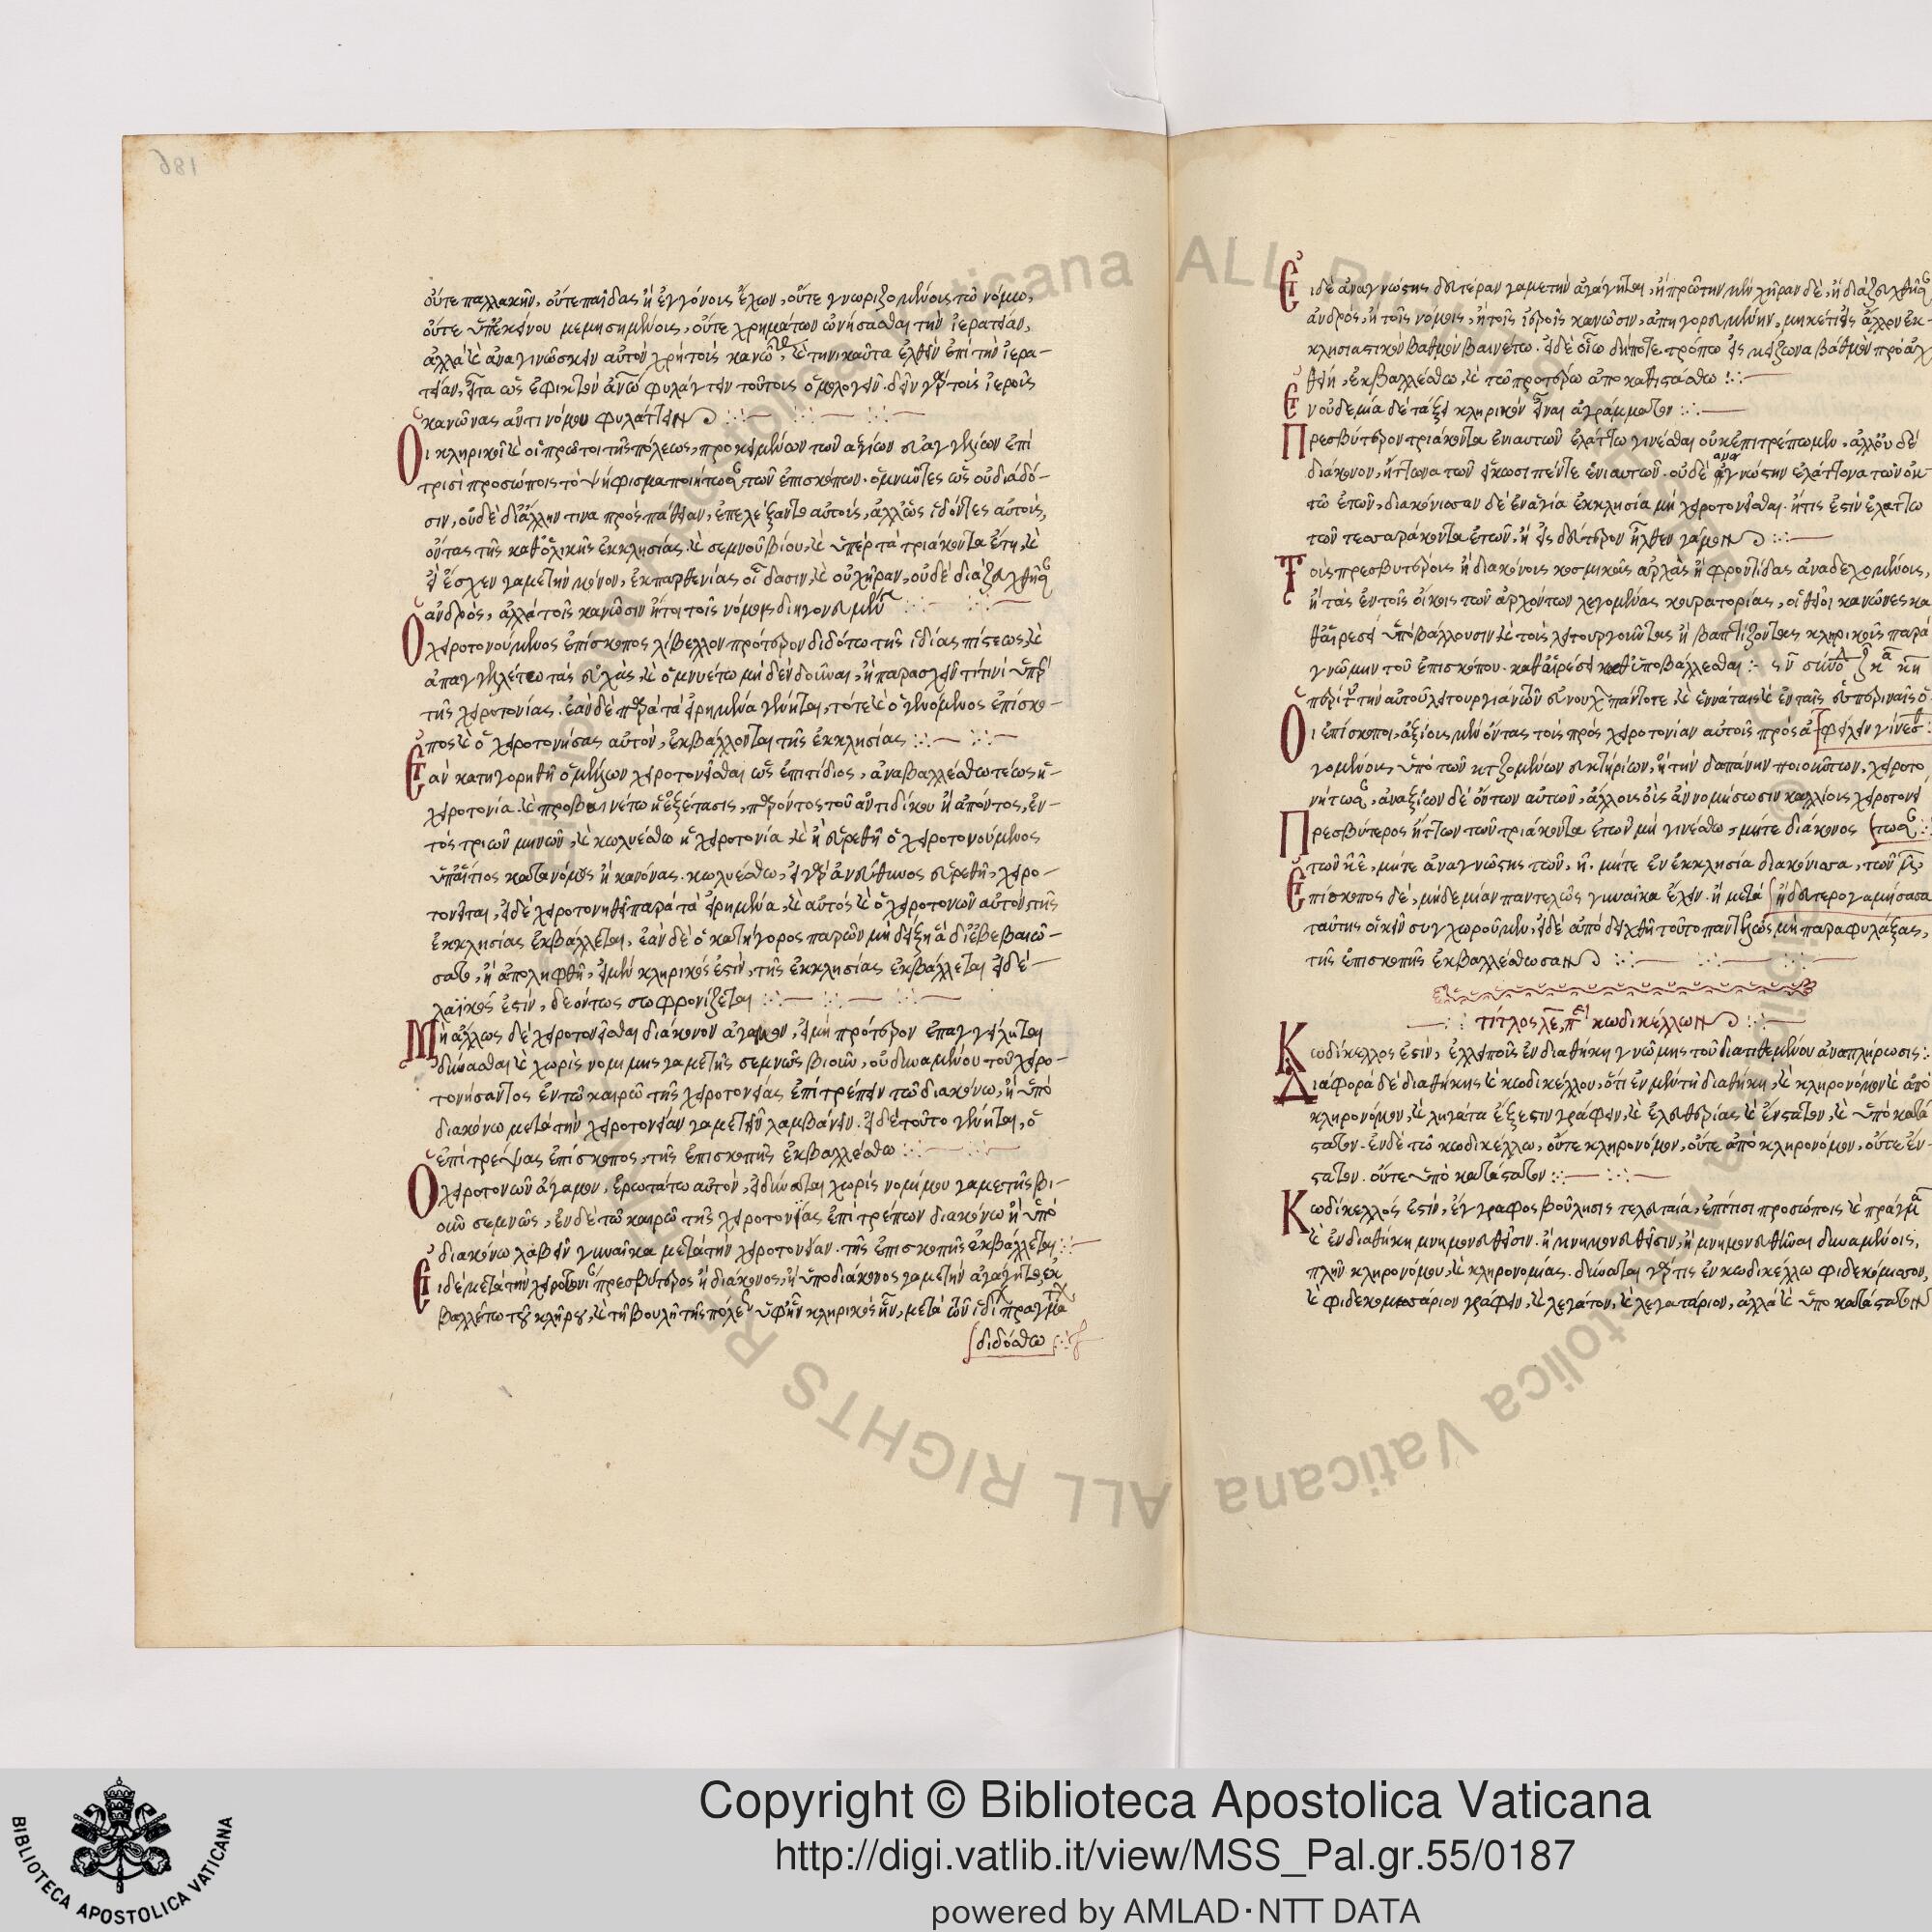 οὔτε παλλακὴν, οὔτε παῖδας ἢ ἐγγόνους ἔχων, οὔτε γνωριζομένους τῷ νόμω,
οὔτε ὑπ' ἐκείνου μεμισημένους, οὔτε χρημάτων ὠνήσασθαι τὴν ἱερατείαν,
κανῶνας ἀντὶ νόμου φυλάττειν
Οἱ κληρικοὶ καὶ οἱ πρῶτοι τῆς πόλεως, προκειμένων τῶν ἁγίων εὐαγγελίων ἐπὶ
τρισὶ προσώποις τὸ ψήφισμα ποιήτωσαν τῶν ἐπισκόπων. ὀμνύντες ὡς οὐ διὰ δό-
σιν, οὐδὲ δι' ἄλλην τινα προσπάθειαν, ἐπελέξαντο αὐτοὺς, ἀλλ' ὡς εἰδότες αὐτοὺς,
ὄντας τῆς καθολικῆς ἐκκλησίας. καὶ σεμνοῦ βίου, καὶ ὑπὲρ τὰ τριάκοντα ἔτη, καὶ
ἀνδρὸς, ἀλλὰ τοῖς κανῶσιν ἤτοι τοῖς νόμοις
Ὁ χειροτονούμενος ἐπίσκοπος λίβελλον πρότερον διδότω τῆς ἰδίας πίστεως, καὶ
ἀπαγγελλέτω τὰς εὐχὰς, καὶ ὀμνυέτω μὴ δεδωκέναι, ἢ παρασχεῖν τί τινι ὑπὲρ
τῆς χειροτονίας. ἐὰν δὲ παρὰ τὰ εἰρημένα γένηται, τότε καὶ ὁ γενόμενος ἐπίσκο-
πος καὶ ὁ χειροτονήσας αὐτὸν, ἐκβάλλονται τῆς ἐκκλησίας
Ἐὰν κατηγορηθῆ ὁ μέλλων χειροτονεῖσθαι ὡς ἐπιτίδιος, ἀναβαλλέσθω τέως ἡ
χειροτονία. καὶ προβαινέτω ἡ ἐξέτασις, παρόντος τοῦ ἀντιδίκου ἢ ἀπόντος, ἐν-
τὸς τριῶν μηνῶν, καὶ κωλυέσθω ἡ χειροτονία, καὶ ἢ εὑρεθῆ ὁ χειροτονούμενος
ὑπαίτιος κατὰ νόμους ἢ κανόνας. κωλυέσθω, εἰ γὰρ ἀνεύθυνος εὑρεθῆ, χειρο-
τονεῖται, εἰ δὲ χειροτονηθῆ παρὰ τὰ εἰρημένα, καὶ αὐτὸς καὶ ὁ χειροτονῶν αὐτὸν τῆς
ἐκκλησίας ἐκβάλλεται, ἐὰν δὲ ὁ κατήγορος παρὼν μὴ δείξη ἃ διεβεβαιώ-
σατο, ἢ ἀπολειφθῆ, εἰ μὲν κληρικός ἐστιν, τῆς ἐκκλησίας ἐκβάλλεται εἰ δὲ
λαϊκός ἐστιν, δεόντως σωφρονίζεται
Μὴ ἄλλως δὲ χειροτονεῖσθαι διάκονον ἄγαμον, εἰ μὴ πρότερον ἐπαγγείληται
δύνασθαι καὶ χωρὶς νομίμης γαμετῆς σεμνῶς βιοῦν, οὐ δυναμένου τοῦ χειρο-
τονήσαντος ἐν τῶ καιρῶ τῆς χειροτονείας ἐπιτρέπειν τῶ διακόνω, ἢ ὑπο
διακόνω μετὰ τὴν χειροτονείαν γαμετὴν λαμβάνειν. εἰ δὲ τοῦτο γένηται, ὁ
ἐπιτρέψας ἐπίσκοπος, τῆς ἐπισκοπῆς ἐκβαλλέσθω
Ὁ χειροτονῶν ἄγαμον, ἐρωτάτω αὐτὸν, εἰ δύναται χωρὶς νομίμου γαμετῆς βι-
οῦν σεμνῶς, ἐν δὲ τῶ καιρῶ τῆς χειροτονείας ἐπιτρέπων διακόνω ἢ ὑπο
διακόνω λαβεῖν γυναῖκα μετὰ τὴν χειροτονείαν. τῆς ἐπισκοπῆς ἐκβάλλεται
διδόσθω
Εἰ δὲ ἀναγνώστης δευτέραν γαμετὴν ἀγάγηται, ἢ πρώτην μὲν χῆραν δὲ, ἢ διαζευχθεῖσαν
ἀνδρὸς, ἢ τοῖς νόμοις, ἢ τοῖς ἱεροῖς κανῶσιν, ἀπηγορευμένην, μηκέτι εἰς ἄλλον ἐκ-
κλησιαστικὸν βαθμὸν βαινέτω. εἰ δὲ οἵω δήποτε τρόπω εἰς μείζωνα βαθμὸν προαχ
θείη, ἐκβαλλέσθω, καὶ τῶ προτέρω ἀποκαθιστάσθω
Ἐν οὐδεμία δὲ τάξει κληρικὸν εἶναι ἀγράμματον
Πρεσβύτερον τριάκοντα ἐνιαυτῶν ἐλάττω γινέσθαι οὐκ ἐπιτρέπωμεν. ἀλλ' οὐδὲ
διάκονον, ἥττωνα τῶν εἴκωσι πέντε ἐνιαυτῶν. οὐδὲ ἀναγνώστην ἐλάττονα τῶν ὀκ-
τὼ ἐτῶν, διακόνισσαν δὲ ἐν ἁγία ἐκκλησία μὴ χειροτονεῖσθαι. ἥτις ἐστὶν ἐλάττω
τῶν τεσσαράκοντα ἐτῶν, ἢ εἰς δεύτερον ἦλθεν γάμον
Τοὺς πρεσβυτέρους ἢ διακόνους κοσμικὰς ἀρχὰς ἢ φροντίδας ἀναδεχομένους,
ἢ τὰς ἐν τοῖς οἴκοις τῶν ἀρχόντων λεγομένας κουρατορίας, οἱ θεῖοι κανόνες κα
θαιρέσει ὑποβάλλουσιν καὶ τοὺς λειτουργοῦντας ἢ βαπτίζοντας κληρικοὺς παρὰ
γνώμην τοῦ ἐπισκόπου. καθαιρέσει καθυποβάλλεσθαι
Οἱ ἐπίσκοποι, ἀξίους μὲν ὄντας τοὺς πρὸς χειροτονίαν αὐτοῖς προσα
γομένους ὑπὸ τῶν κτιζομένων εὐκτηρίων, ἢ τὴν δαπάνην ποιούντων, χειροτο
νήτωσαν, ἀναξίων δὲ ὄντων αὐτῶν, ἄλλους οὓς ἂν νομήσωσιν καλλίους χειροτονεί
Πρεσβύτερος ἥττων τῶν τριάκοντα ἐτῶν μὴ γινέσθω μήτε διάκονος τωσαν
τῶν κε, μήτε ἀναγνώστης τῶν, η. μήτε ἐν ἐκκλησία διακόνισσα, τῶν μ
Ἐπίσκοπος δὲ, μηδεμίαν παντελῶς γυναῖκα ἔχειν. ἢ μετὰ ἡ δευτερογαμήσασα
ταύτης οἰκεῖν συγχωροῦμεν, εἰ δὲ ἀποδειχθῆ τοῦτο παντελῶς μὴ παραφυλάξας,
τῆς ἐπισκοπῆς ἐκβαλλέσθωσαν
τίτλος λε, περὶ κωδικέλλων
Κωδίκελλος ἐστὶν, ἐλλειποῦς ἐν διαθήκη γνώμης τοῦ διατιθεμένου ἀναπλήρωσις
Διαφορὰ δὲ διαθήκης καὶ κωδικέλλου, ὅτι ἐν μὲν τῆ διαθήκη, καὶ κληρονόμον καὶ ἀπὸ
κληρονόμου, καὶ ληγάτα ἔξεστιν γράφειν, καὶ ἐλευθερίας καὶ ἔνστατον, καὶ ὑποκατά
στατον. ἐν δὲ τῶ κωδικέλλω, οὔτε κληρονόμον, οὔτε ἀπὸ κληρονόμου, οὔτε ἔν-
στατον. οὔτε ὑποκατάστατον
Κωδίκελλός ἐστιν, ἔγγραφος βούλησις τελευταία, ἐπί τισι προσώποις καὶ πράγμα
πλὴν κληρονόμου, καὶ κληρονομίας. δύναται γάρ τις ἐν κωδικέλλω φιδεκόμισσον,
καὶ φιδεκομισσάριον γράφειν, καὶ λεγάτον, καὶ λεγατάριον, ἀλλὰ καὶ ὑποκατάστατον
186
Copyright © Biblioteca Apostolica Vaticana
http://digi.vatlib.it/view/MSS_Pal.gr.55/0187
powered by AMLAD·NTT DATA
BIBLIOTECA APOSTOLICA VATICANA